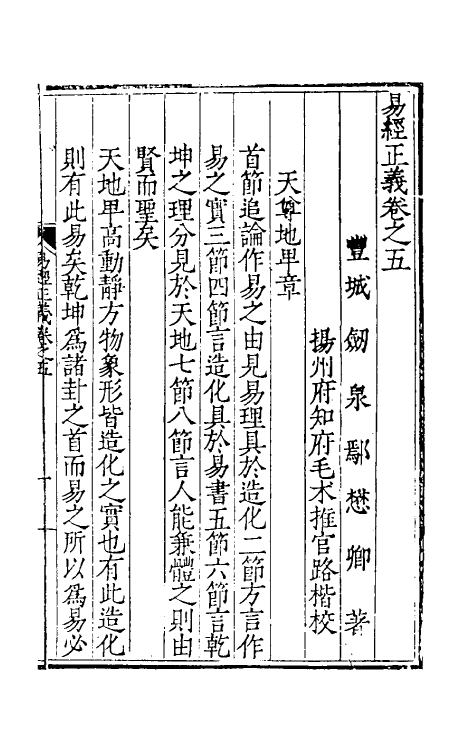 易經正義卷之五
豐城劒泉鄢懋卿著
揚州府知府毛术推官路楷校
天尊地卑章
首節追論作易之由見易理具於造化二節方言作
易之實三節四節言造化具於易書五節六節言乾
坤之理分見於天地七節八節言人能兼體之則由
賢而聖矣
天地卑高動靜方物象形皆造化之實也有此造化
則有此易矣乾坤為諸卦之首而易之所以為易必
易經正義卷之五